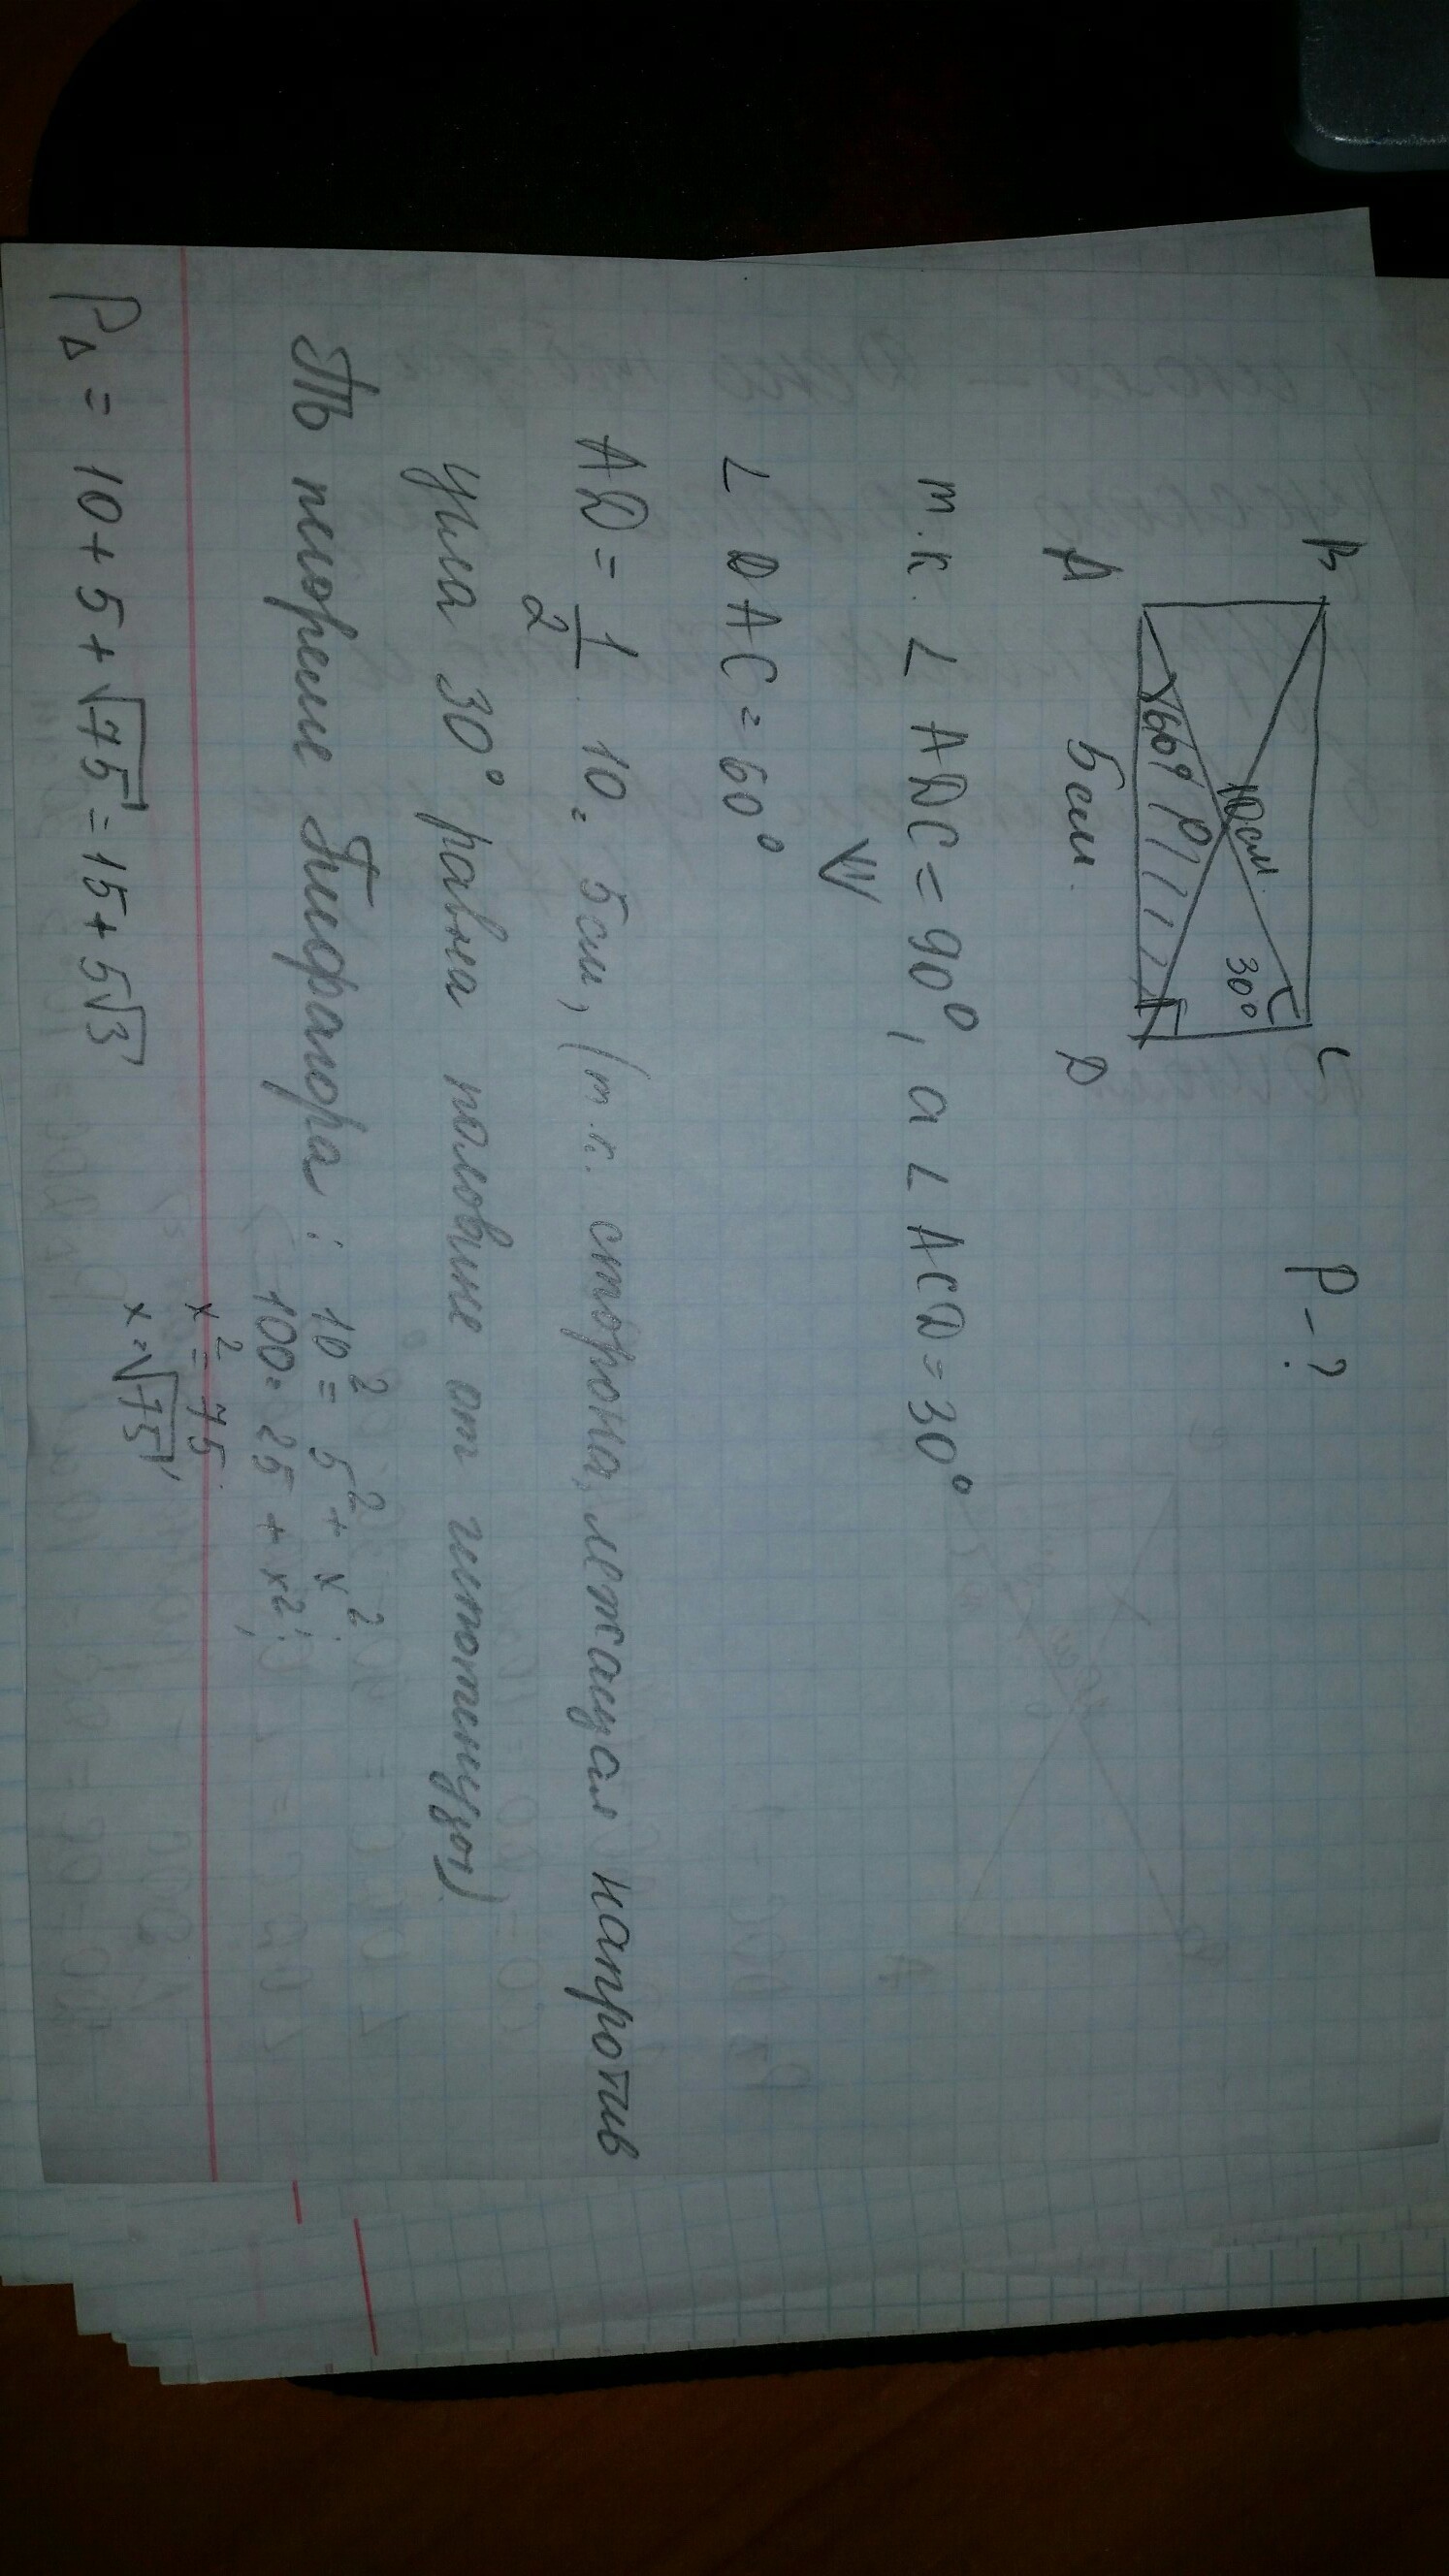 P - ?
B
C
10см
30°
60°
P
A
5 см.
D
т.к. ∠ ADC = 90°, а ∠ ACD = 30°
∠ DAC = 60°
AD = 1/2 · 10 = 5см, (т.к. сторона, лежащая напротив
угла 30° равна половине от гипотенузы)
По теореме Пифагора: 10² = 5² + x²;
100 = 25 + x²;
x² = 75.
x = √75
P∆ = 10 + 5 + √75 = 15 + 5√3